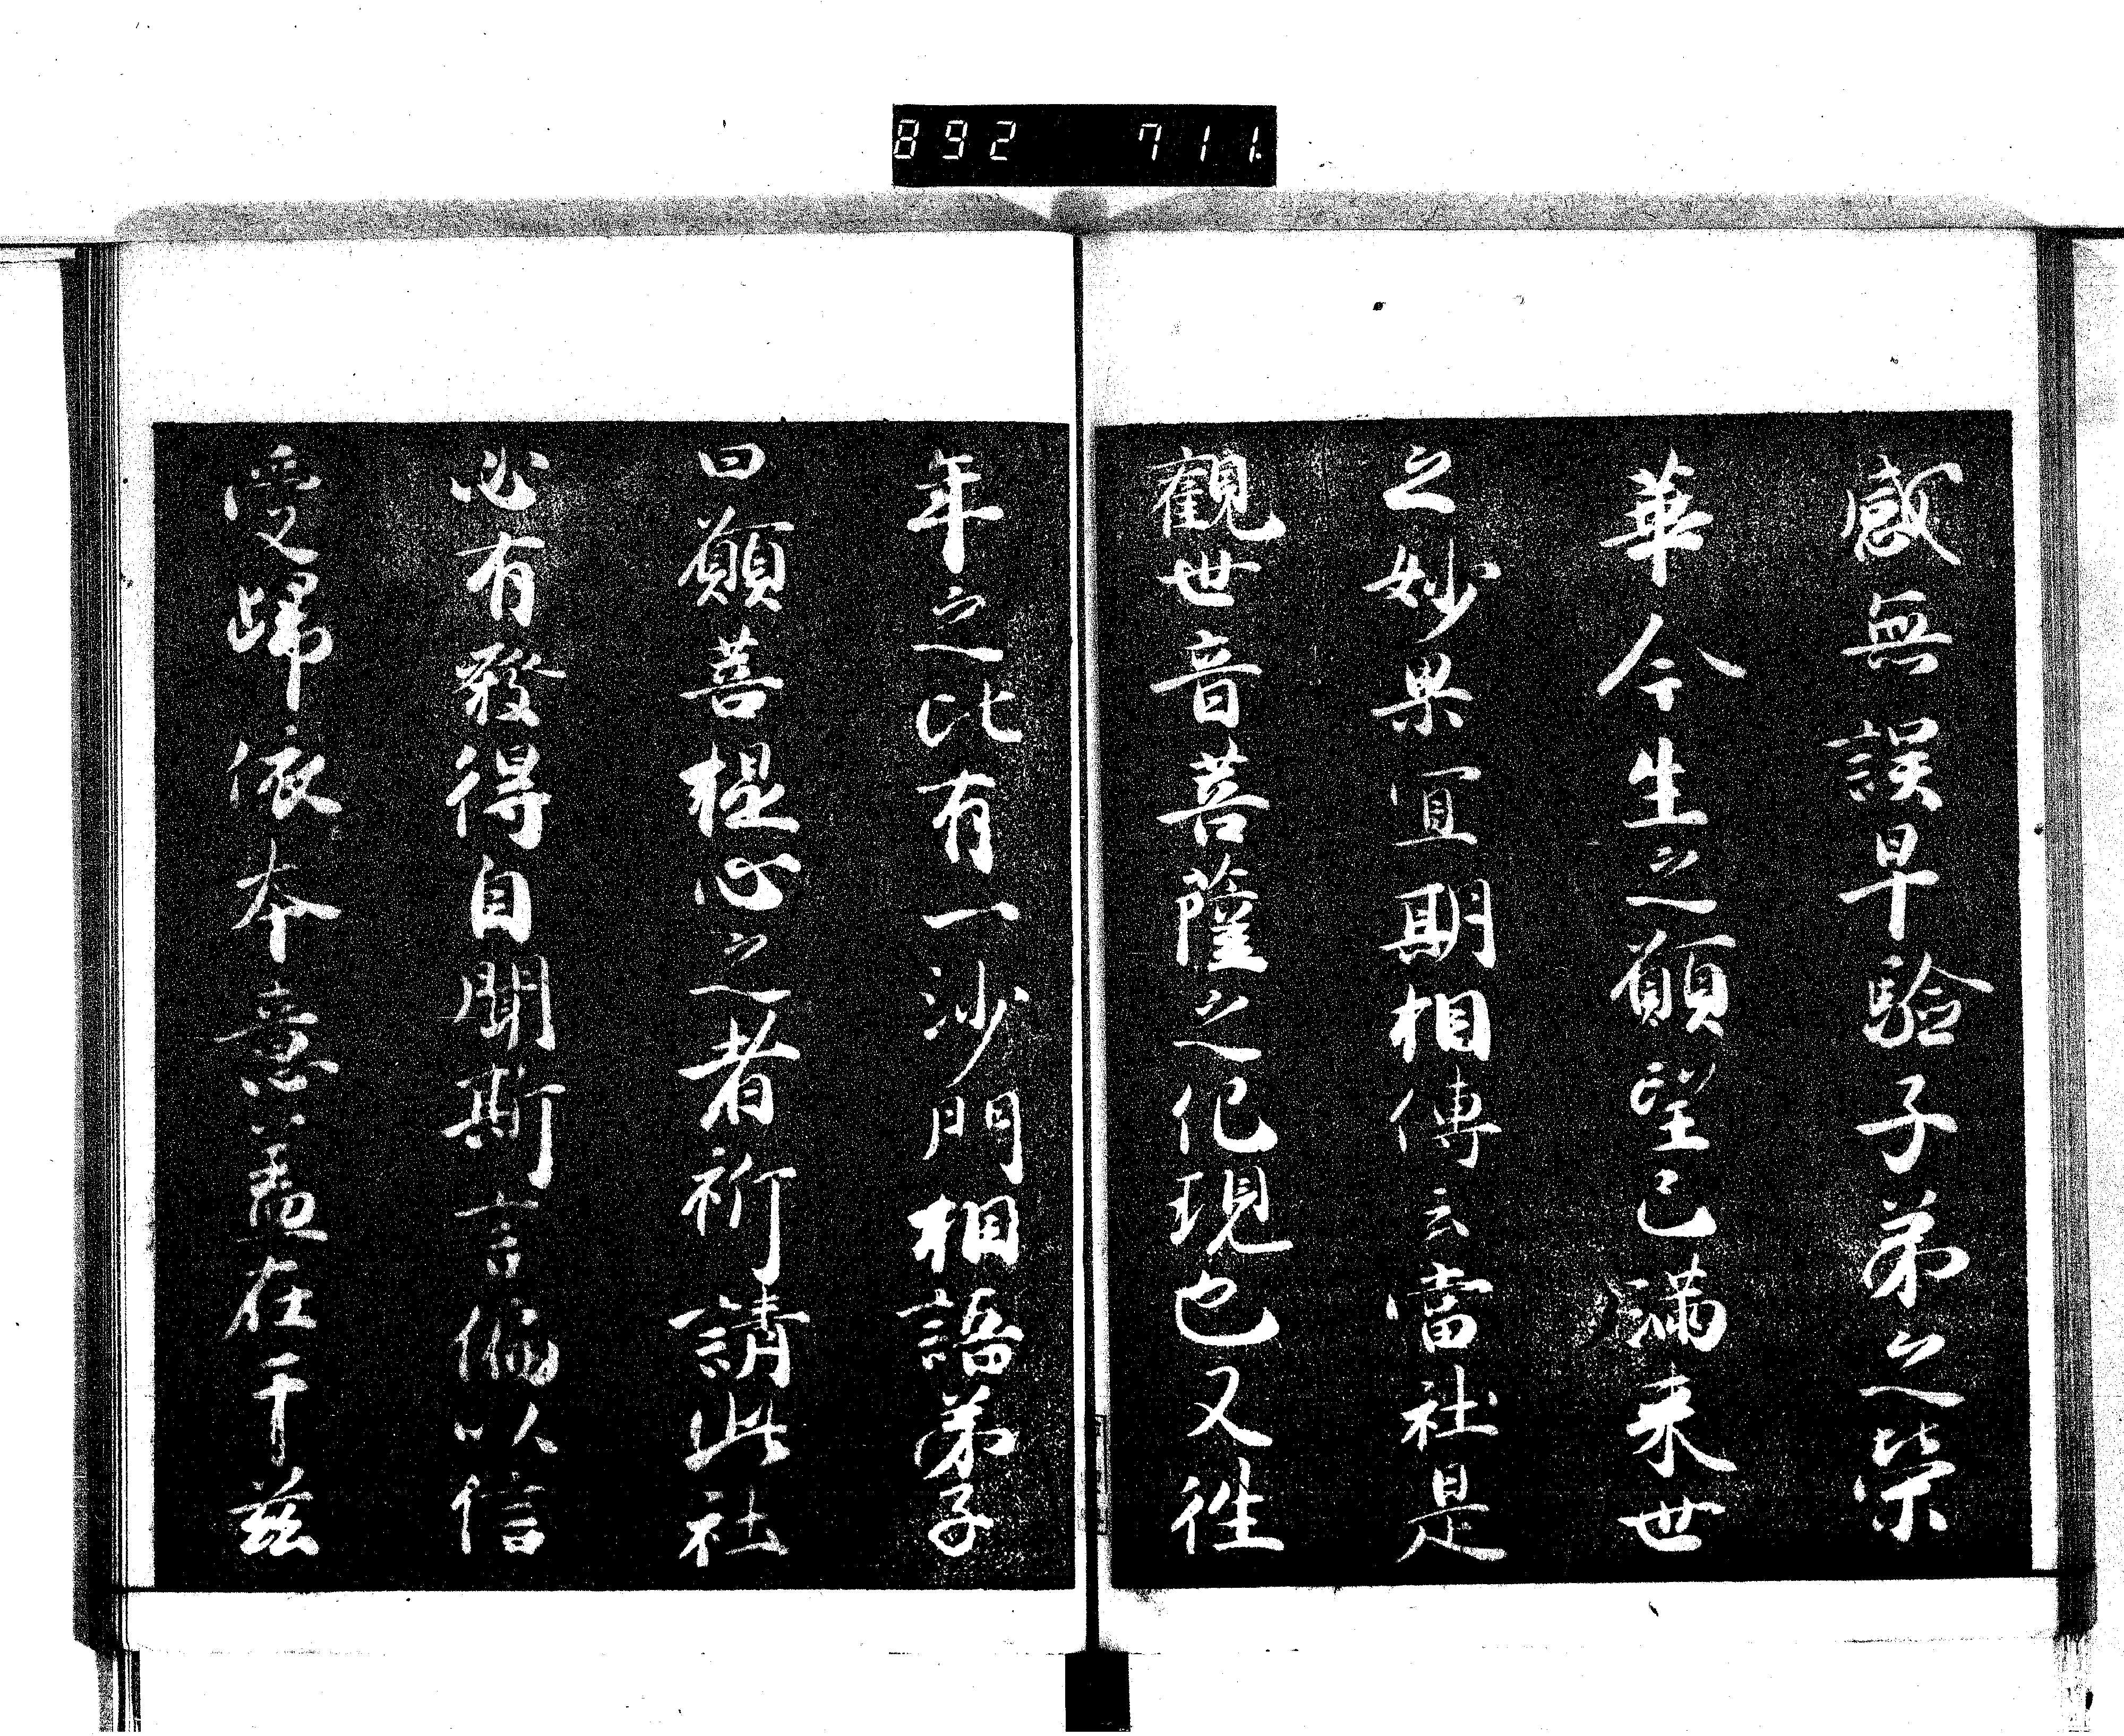 892 711.
感無誤早驗子弟之榮
華今生之願望已滿来世
之妙果宜期相傳云當社是
觀世音菩薩之化現也又往
年之比有一沙門相語弟子
曰願菩提心之者祈請此社
必有發得自聞斯言偏以信
受歸依本意盖在于茲